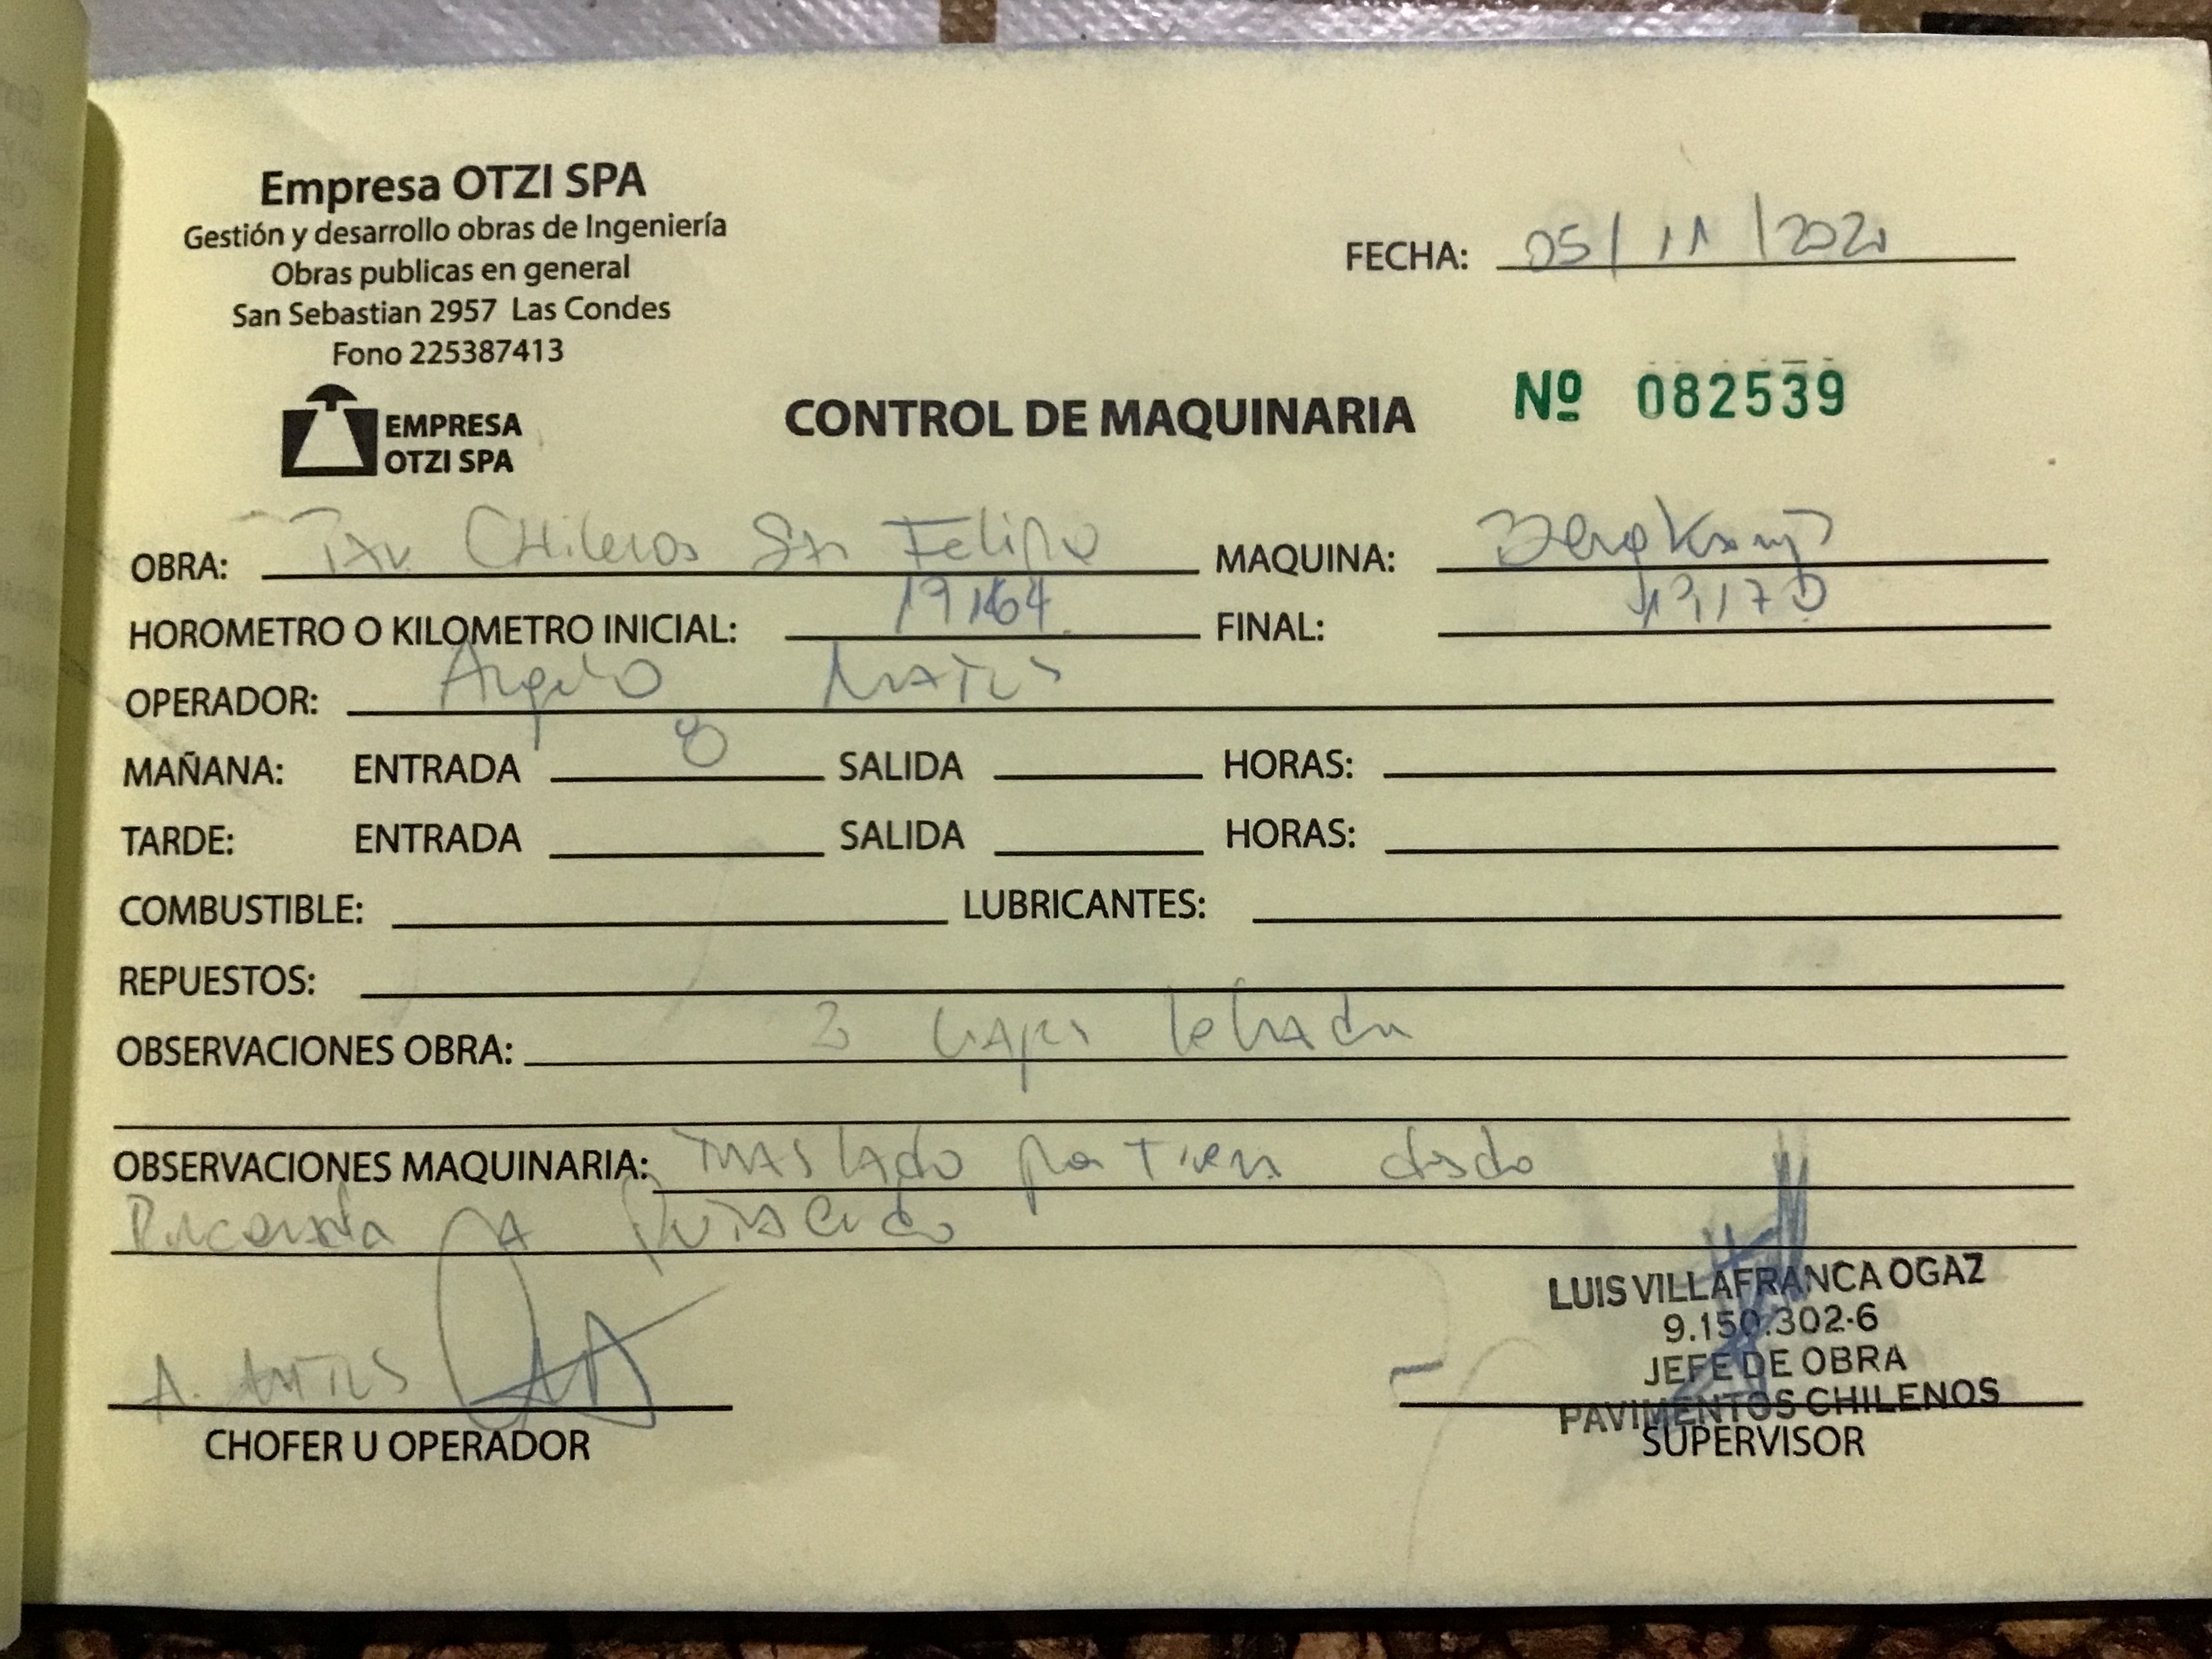 Empresa OTZI SPA
Gestión y desarrollo obras de Ingeniería
Obras publicas en general
San Sebastian 2957 Las Condes
Fono 225387413
FECHA: 05/11/2021
EMPRESA
OTZI SPA
CONTROL DE MAQUINARIA Nº 082539
OBRA: Chilenos San Felipe MAQUINA:
HOROMETRO O KILOMETRO INICIAL: FINAL:
OPERADOR: Angelo
MAÑANA: ENTRADA 8 SALIDA HORAS:
TARDE: ENTRADA SALIDA HORAS:
COMBUSTIBLE: LUBRICANTES:
REPUESTOS:
OBSERVACIONES OBRA:
OBSERVACIONES MAQUINARIA: traslado desde
CHOFER U OPERADOR
LUIS VILLAFRANCA OGAZ
9.150.302-6
JEFE DE OBRA
PAVIMENTOS CHILENOS
SUPERVISOR